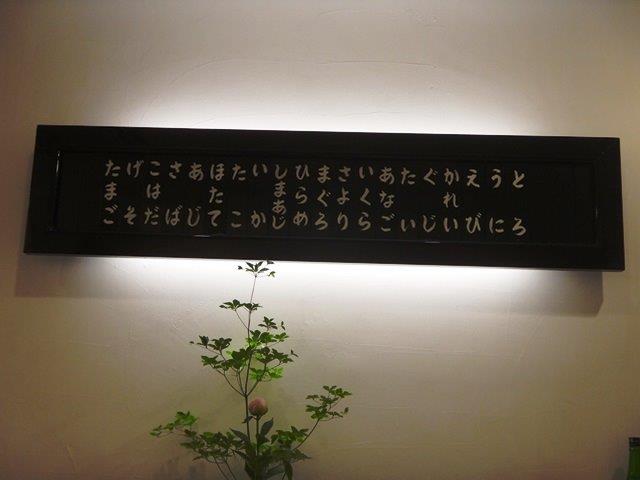 とろ
うに
えび
かれい
ぐじ
たい
あなご
いくら
さより
まぐろ
ひらめ
しまあじ
いか
たこ
ほたて
あじ
さば
こはだ
げそ
たまご